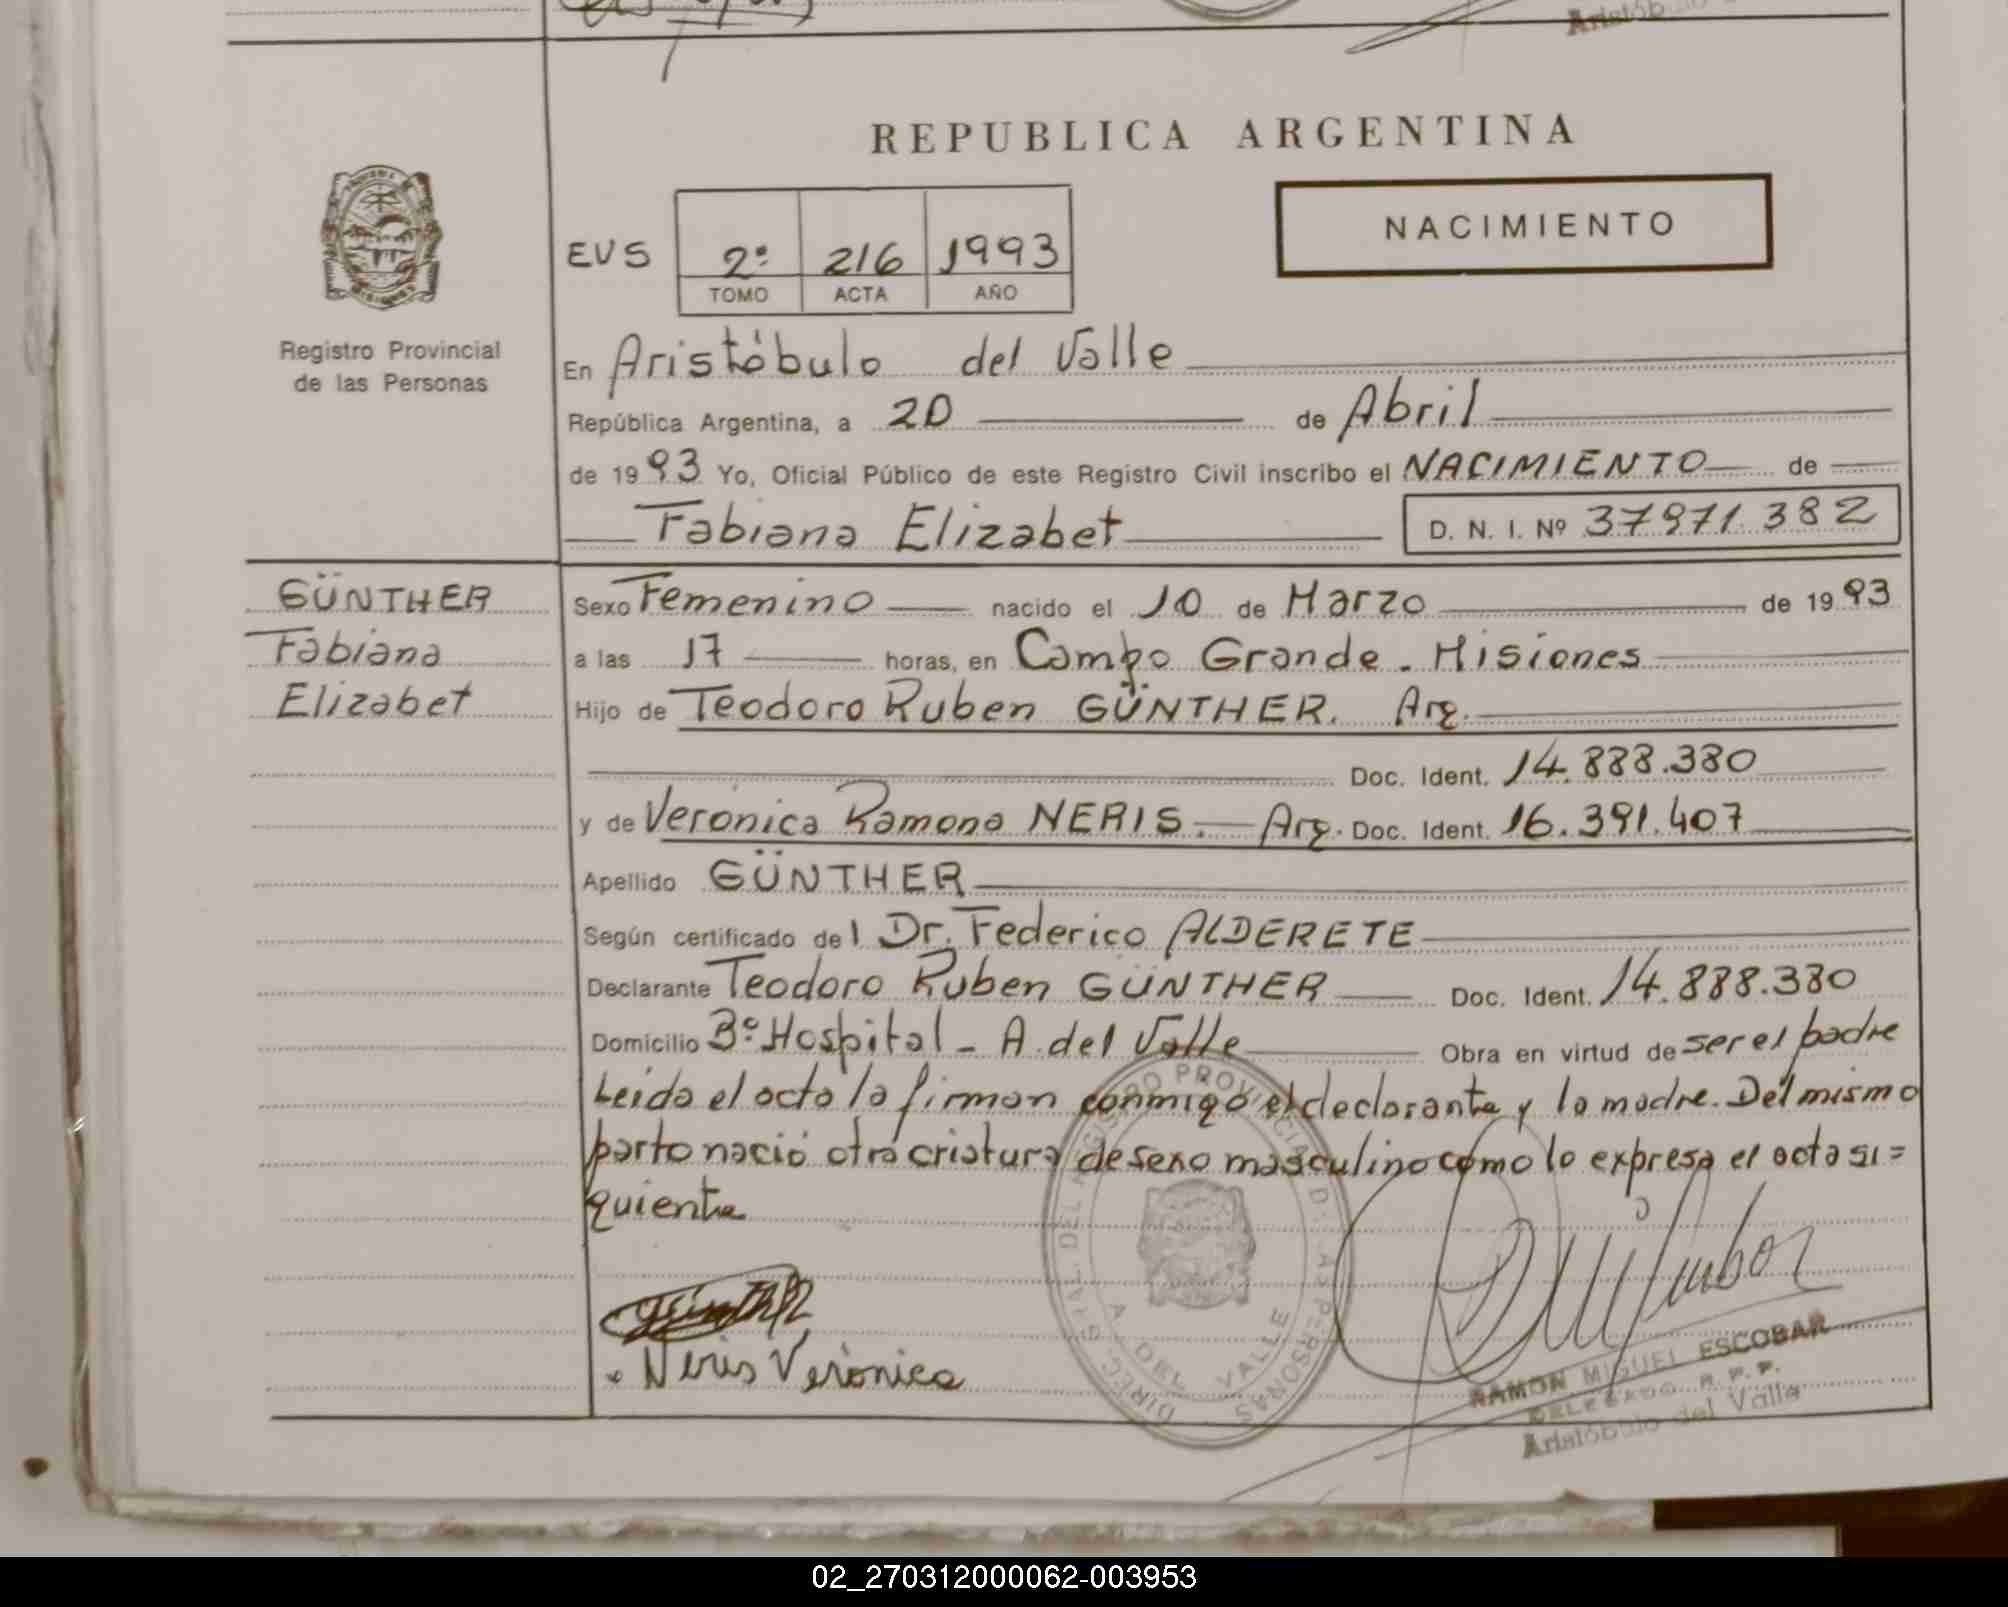 Aristób
REPUBLICA ARGENTINA
NACIMIENTO
EVS 2º 216 1993
TOMO ACTA AÑO
Registro Provincial
de las Personas
En Aristóbulo del Valle
República Argentina, a 20 de Abril
de 1993 Yo, Oficial Público de este Registro Civil inscribo el NACIMIENTO de
Fabiana Elizabet D. N. I. Nº 37971.382
GÜNTHER
Fabiana
Elizabet
Sexo Femenino nacido el 10 de Marzo de 1993
a las 17 horas, en Campo Grande. Misiones
Hijo de Teodoro Ruben GÜNTHER. Arg.
Doc. Ident. 14.888.380
y de Verónica Ramona NERIS. Arg. Doc. Ident. 16.391.407
Apellido GÜNTHER
Según certificado del Dr. Federico ALDERETE
Declarante Teodoro Ruben GÜNTHER Doc. Ident. 14.888.380
Domicilio Bº Hospital - A. del Valle Obra en virtud de ser el padre
Leida el acta la firman conmigo el declarante y la madre. Del mismo
parto nació otra criatura de sexo masculino como lo expresa el acta si=
guiente
Neris Verónica
DIREC. GRAL. DEL REGISTRO PROVINCIAL D. LAS PERSONAS
A. DEL VALLE
RAMON MIGUEL ESCOBAR
DELEGADO R. P. P.
Aristóbulo del Valle
02_270312000062-003953